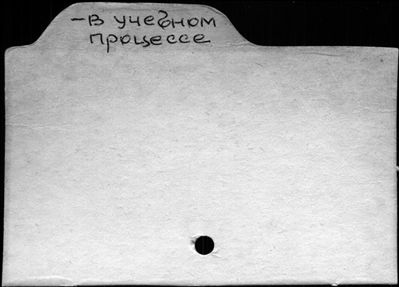 -В учебном
процессе